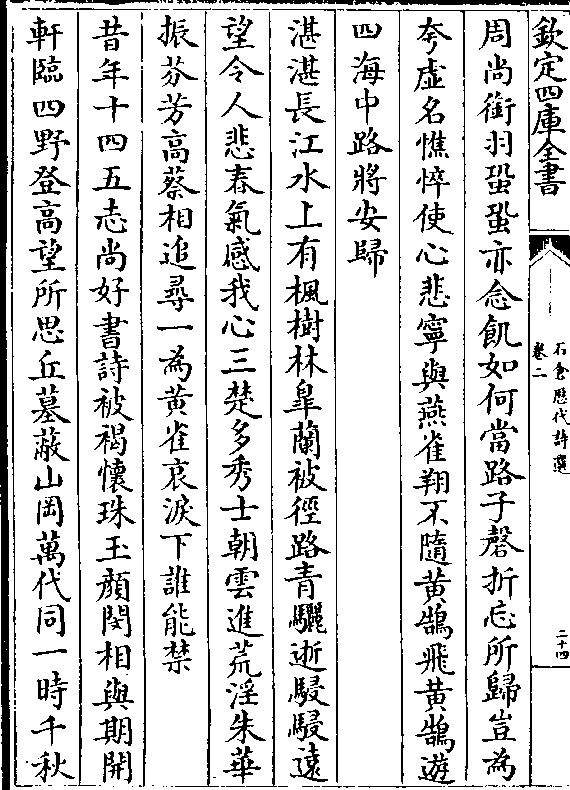 欽定四庫全書
石倉歷代詩選
卷二
二十四
周尚銜羽蛩蛩亦念飢如何當路子磬折忘所歸豈為
夸虛名憔悴使心悲寧與燕雀翔不隨黃鵠飛黃鵠遊
四海中路將安歸
湛湛長江水上有楓樹林臯蘭被徑路青驪逝駸駸遠
望令人悲春氣感我心三楚多秀士朝雲進荒淫朱華
振芬芳高蔡相追尋一為黃雀哀淚下誰能禁
昔年十四五志尚好書詩被褐懷珠玉顔閔相與期開
軒臨四野登高望所思丘墓蔽山岡萬代同一時千秋